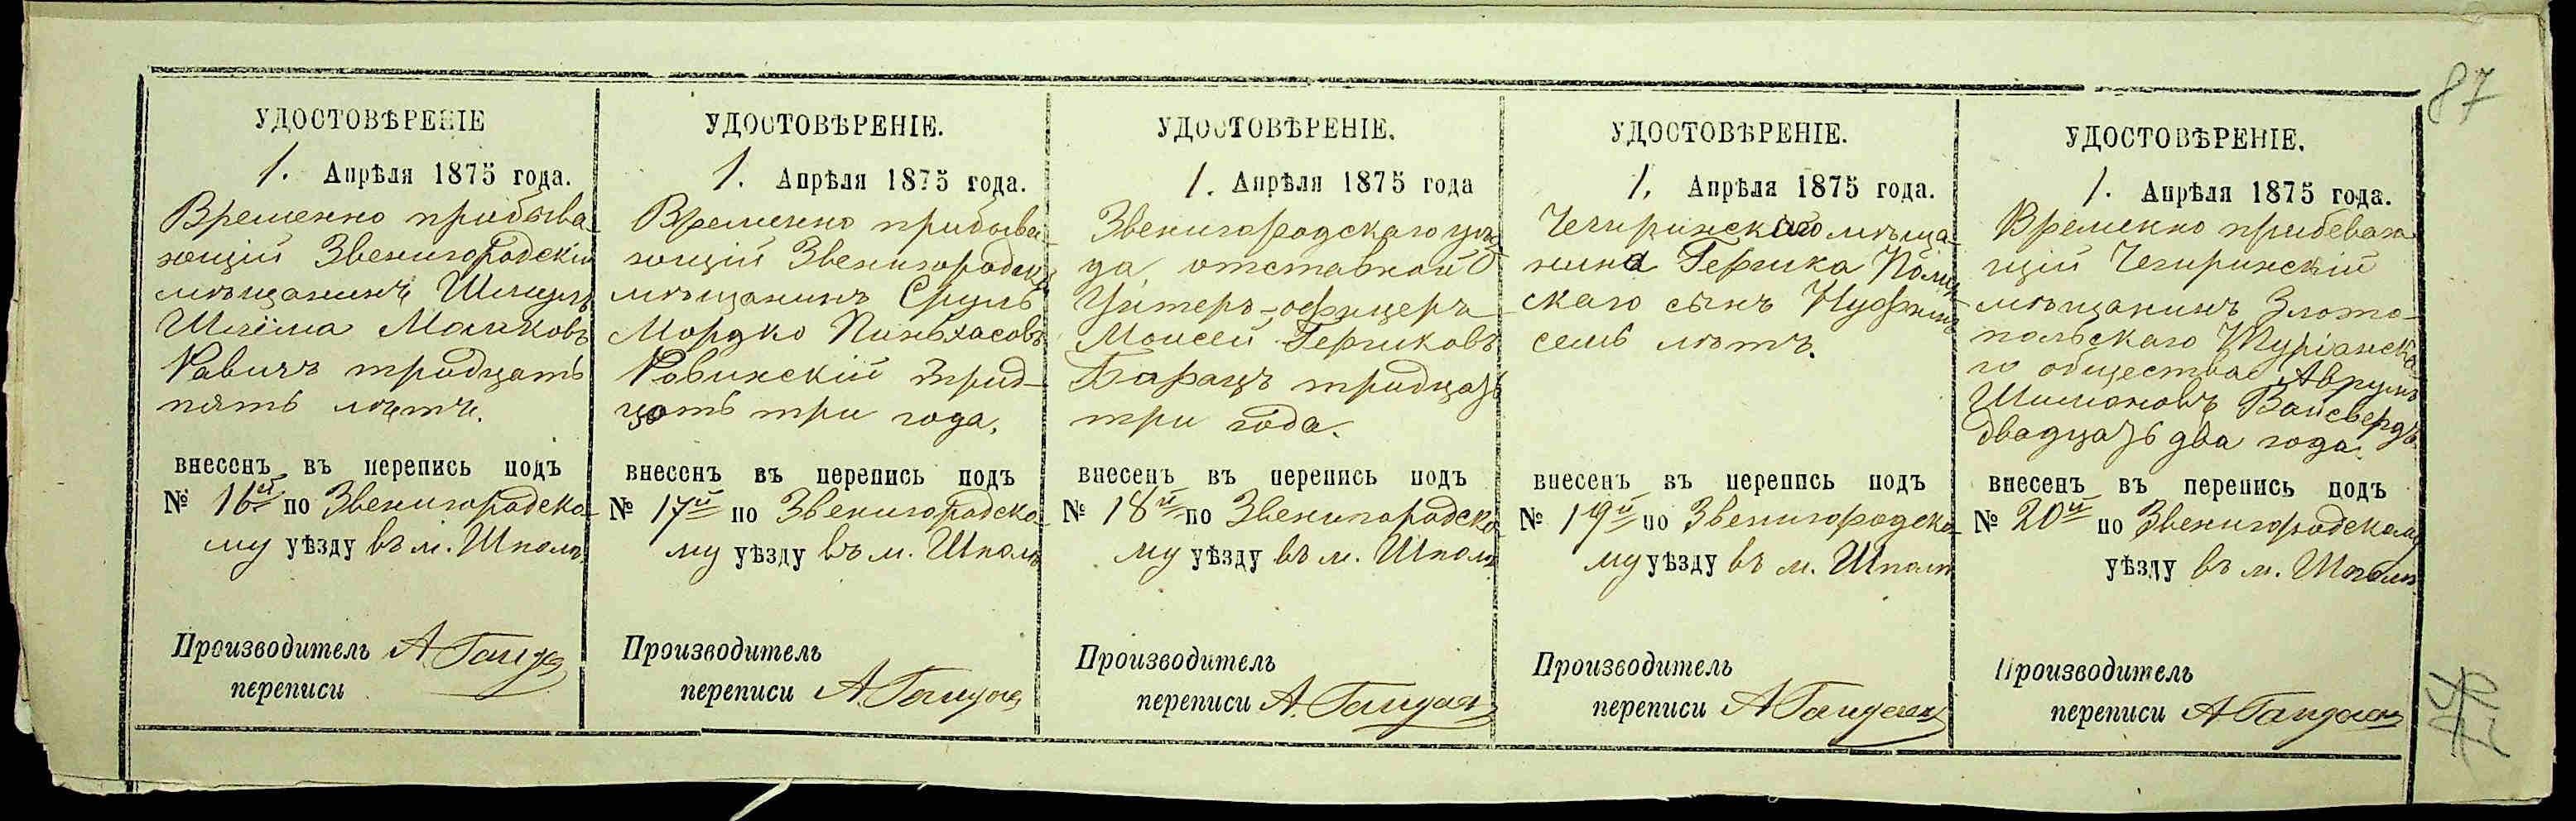 87
УДОСТОВѢРЕНІЕ
1. Апрѣля 1875 года.
Временно прибыва-
ющій Звенигородскій
мѣщанинъ Шмуль
Шлёма Мошковъ
Равичъ тридцать
пять лѣтъ.
внесенъ въ перепись подъ
№ 16й по Звенигородско-
му уѣзду въ м. Шполѣ
Производитель А.
переписи
УДОСТОВѢРЕНІЕ.
1. Апрѣля 1875 года.
Временно прибыва-
ющій Звенигородскій
мѣщанинъ Сруль
Мордко Пинхасовъ
Равинскій трид-
цать три года.
внесенъ въ перепись подъ
№ 17й по Звенигородско-
му уѣзду въ м. Шполѣ
Производитель
переписи А.
УДОСТОВѢРЕНІЕ.
1. Апрѣля 1875 года
Звенигородскаго уѣз-
да отставной
Унтеръ-офицеръ
Моисей Гершковъ
Барацъ тридцать
три года.
внесенъ въ перепись подъ
№ 18й по Звенигородско-
му уѣзду въ м. Шполѣ
Производитель
переписи А.
УДОСТОВѢРЕНІЕ.
1. Апрѣля 1875 года.
Чегиринскаго мѣща-
нина Гершка
скаго сынъ
семь лѣтъ.
внесенъ въ перепись подъ
№ 19й по Звенигородско-
му уѣзду въ м. Шполѣ
Производитель
переписи А
УДОСТОВѢРЕНІЕ.
1. Апрѣля 1875 года.
Временно прибеваю
щій Чегиринскій
мѣщанинъ Злото-
польскаго Туріанска-
го общества Аврумъ
Шимоновъ Вайсвердъ
двадцать два года.
внесенъ въ перепись подъ
№ 20й по Звенигородскому
уѣзду въ м. Шполѣ
Производитель
переписи А